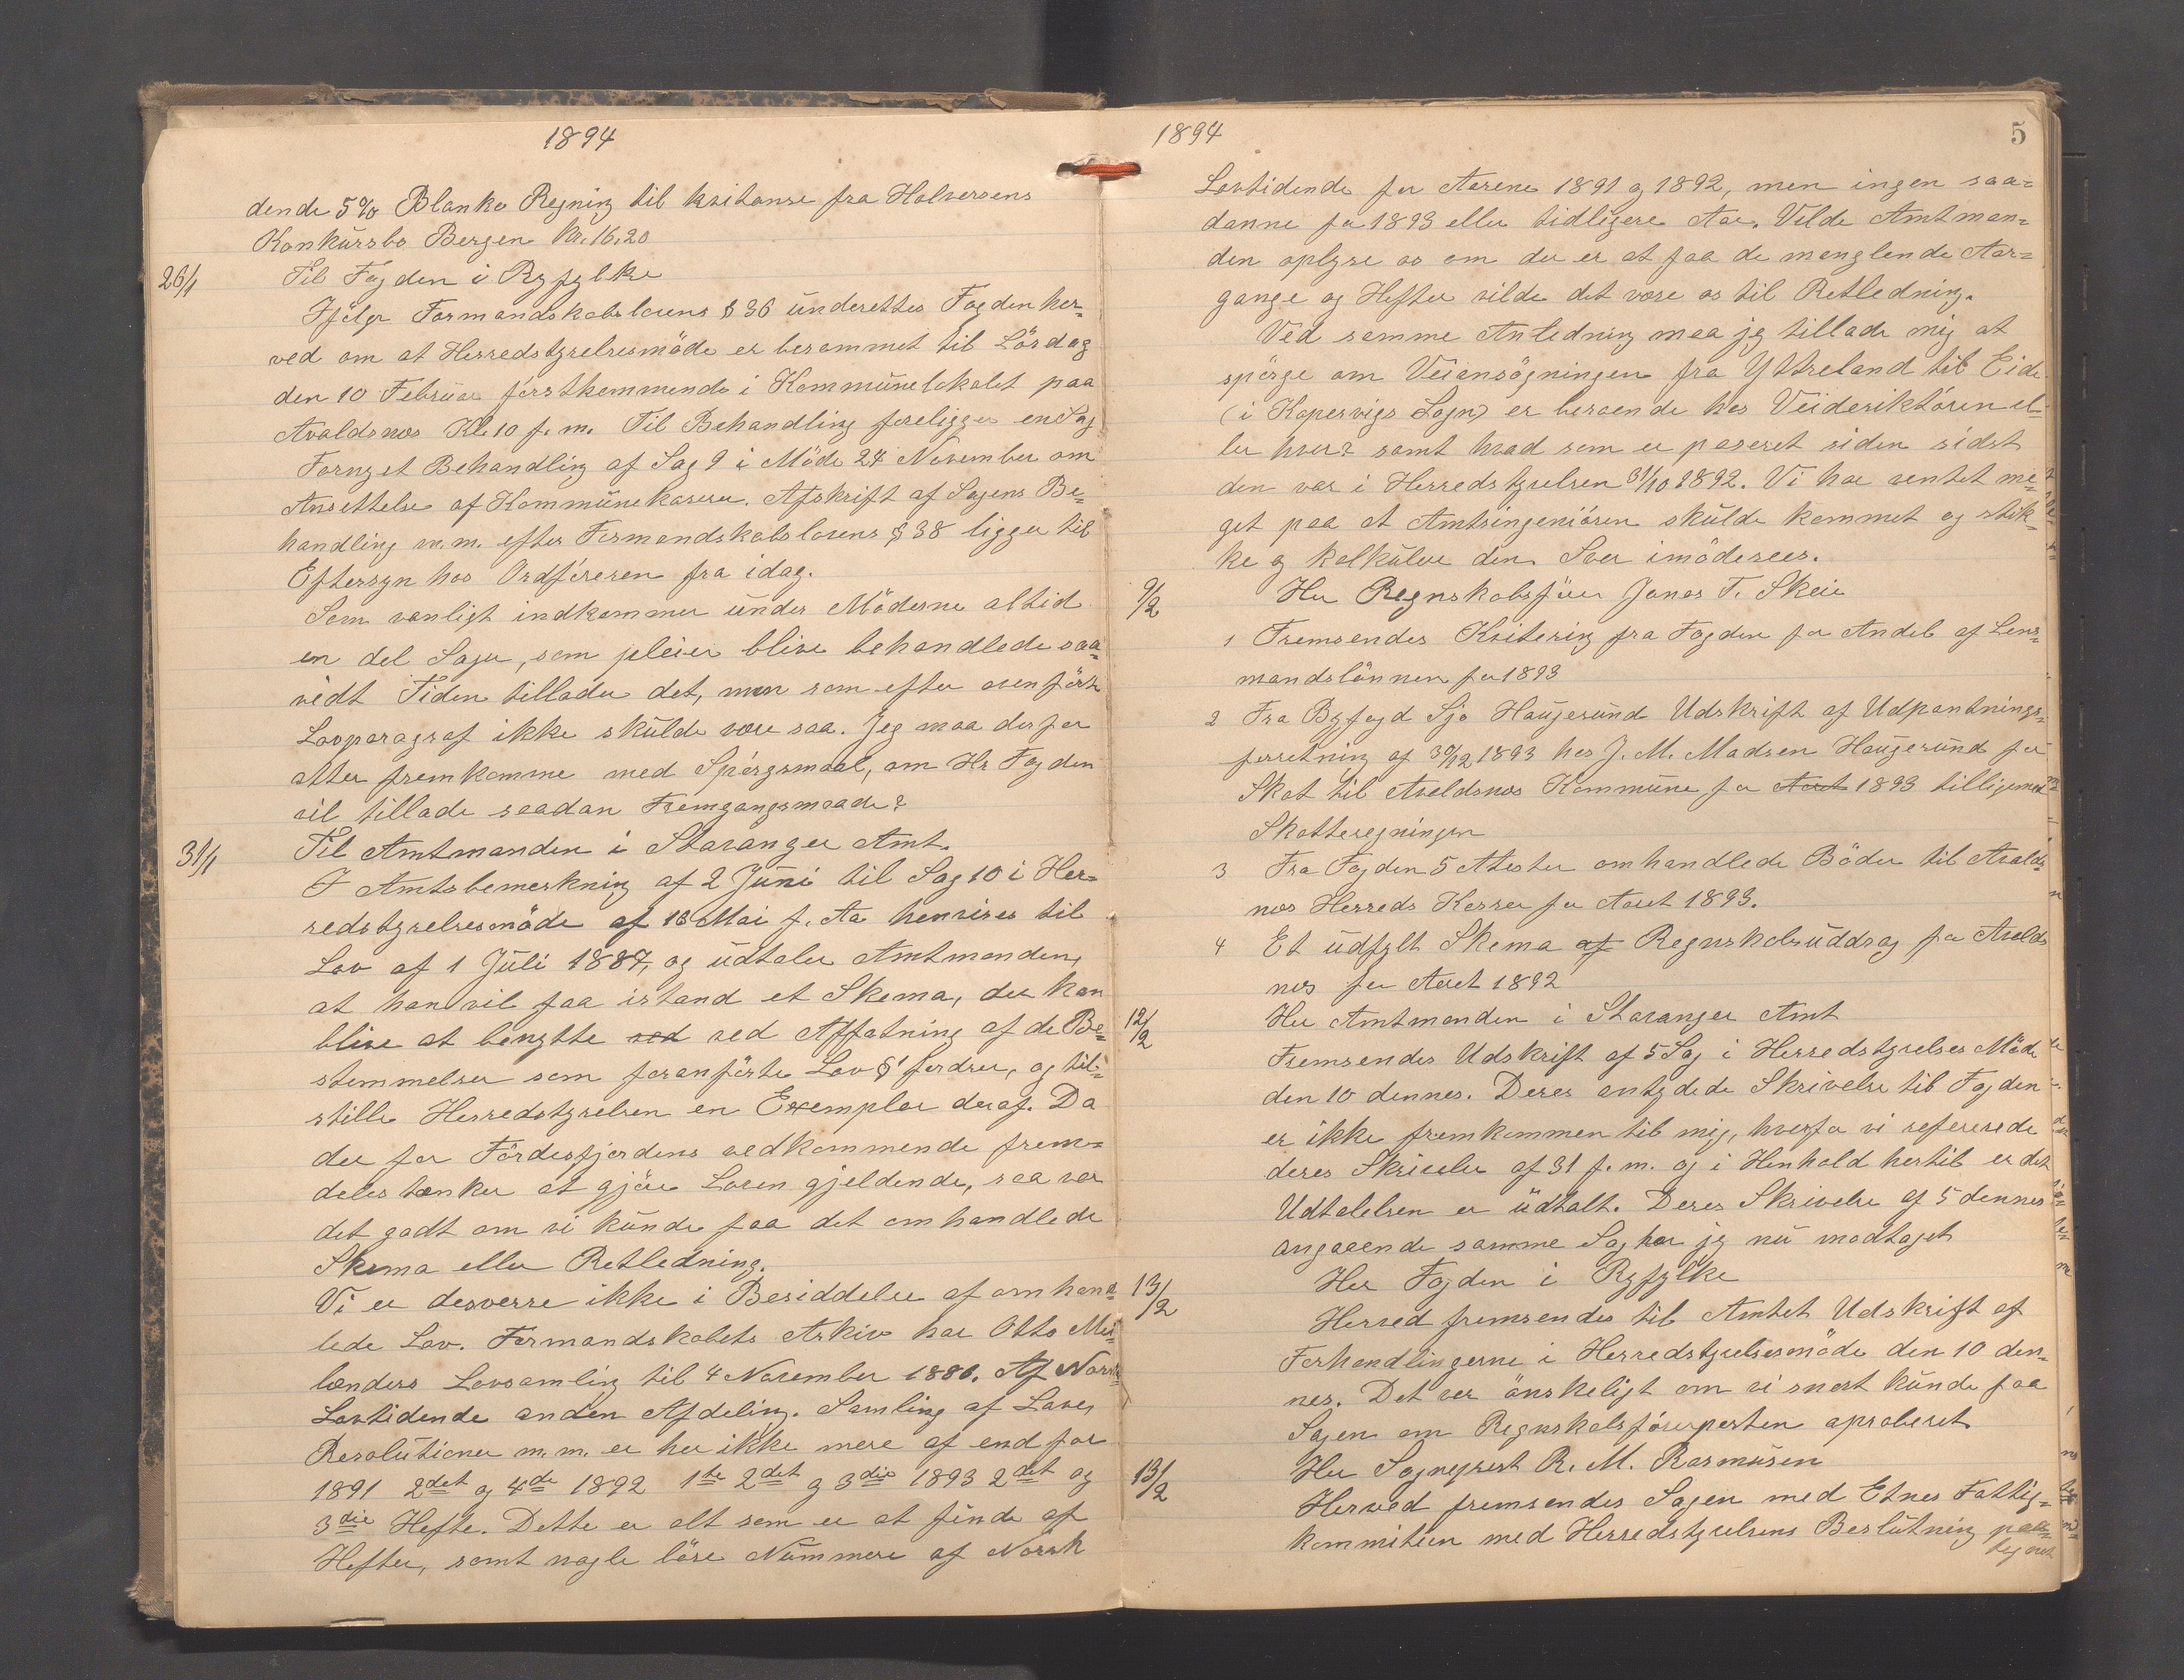 1894
dende 5% Blanko Regning til kvitanse fra Halversens
Konkursbo Bergen Kr. 16,20
26/1 Til Fogden i Ryfylke
Ifölge Formandskabslovens § 36 underettes Fogden her-
ved om at Herredstyrelsesmöde er berammet til Lördag
den 10 Februar förstkommende i Kommunelokalet paa
Avaldsnes Kl. 10 f. m. Til Behandling foreligger en Sag
Fornyet Behandling af Sag 9 i Möde 24 November om
Ansettelse af Kommunekaserer. Afskrift af Sagens Be-
handling m. m. efter Formandskabslovens § 38 ligger til
Eftersyn hos Ordföreren fra idag.
Som vanligt indkommer under Möderne altid
en del Sager, som pleier blive behandlede saa-
vidt Tiden tillader det, men som efter ovenförte
Lovparagraf ikke skulde være saa. Jeg maa derfor
atter fremkomme med Spörgsmaal, om Hr Fogden
vil tillade saadan Fremgangsmaade?
31/1 Til Amtmanden i Stavanger Amt.
I Amtsbemerkning af 2 Juni til Sag 10 i Her-
redstyrelsesmöde af 16 Mai f. Aa henvises til
Lov af 1 Juli 1887, og udtaler Amtmanden,
at han vil faa istand et Skema, der kan
blive at benytte ved ved Affatning af de Be-
stemmelser som foranförte Lov § 1 fordrer, og til-
stille Herredstyrelsen en Exemplar deraf. Da
der for Fördesfjordens vedkommende frem-
deles tænker at gjöre Loven gjeldende, saa var
det godt om vi kunde faa det omhandlede
Skema eller Retledning.
Vi er desverre ikke i Besiddelse af omhand-
lede Lov. Formandskabets Arkiv har Otto Mei-
lænders Lovsamling til 4 November 1886. Af Norsk
Lovtidende anden Afdeling. Samling af Love,
Resolutioner m. m. er her ikke mere af end for
1891 2det og 4de 1892 1te 2det og 3die 1893 2det og
3die Hefte. Dette er alt som er at finde af
Hefter, samt nogle löse Nummere af Norsk
1894
5
Lovtidende for Aarene 1891 og 1892, men ingen saa-
danne for 1893 eller tidligere Aar. Vilde Amtman-
den oplyse os om der er at faa de manglende Aar-
gange og Hefter vilde det være os til Retledning.
Ved samme Anledning maa jeg tillade mig at
spörge om Veiansögningen fra Yttreland til Eide
(i Kopervigs Sogn) er beroende hos Veideriktören el-
ler hvor? samt hvad som er paseret siden sidst
den var i Herredstyrelsen 31/10 1892. Vi har ventet me-
get paa at Amtsingeniören skulde kommet og stik-
ke og kalkulere den. Svar imödesees.
9/2 Her Regnskabsförer Jonas T. Skeie
1 Fremsendes Kvitering fra Fogden for Andel af Lens-
mandslönnen for 1893
2 Fra Byfogd Sjo Haugesund Udskrift af Udpantnings-
forretning af 30/12 1893 hos J. M. Madsen Haugesund for
Skat til Avaldsnes Kommune for Aaret 1893 tilligemed
Skatteregningen
3 Fra Fogden 5 Attester omhandlede Böder til Avalds-
nes Herreds Kasse for Aaret 1893.
4 Et udfylt Skema af Regnskabsuddrag for Avalds
nes for Aaret 1892
12/2 Her Amtmanden i Stavanger Amt
Fremsendes Udskrift af 5 Sag i Herredstyrelses Möde
den 10 dennes. Deres antydede Skrivelse til Fogden
er ikke fremkommen til mig, hvorfor vi refererede
deres Skrivelse af 31 f. m. og i Henhold hertil er det
Udtalelsen er udtalt. Deres Skrivelse af 5 dennes
angaaende samme Sag har jeg nu modtaget
13/2 Her Fogden i Ryfylke
Herved fremsendes til Amtet Udskrift af
Forhandlingerne i Herredstyrelsesmöde den 10 den-
nes. Det var önskeligt om vi snart kunde faa
Sagen om Regnskabsförerposten aproberet
13/2 Her Sogneprest R. M. Rasmusen
Herved fremsendes Sagen med Etnes Fattig-
kommision med Herredstyrelsens Beslutning paa-
tegnet